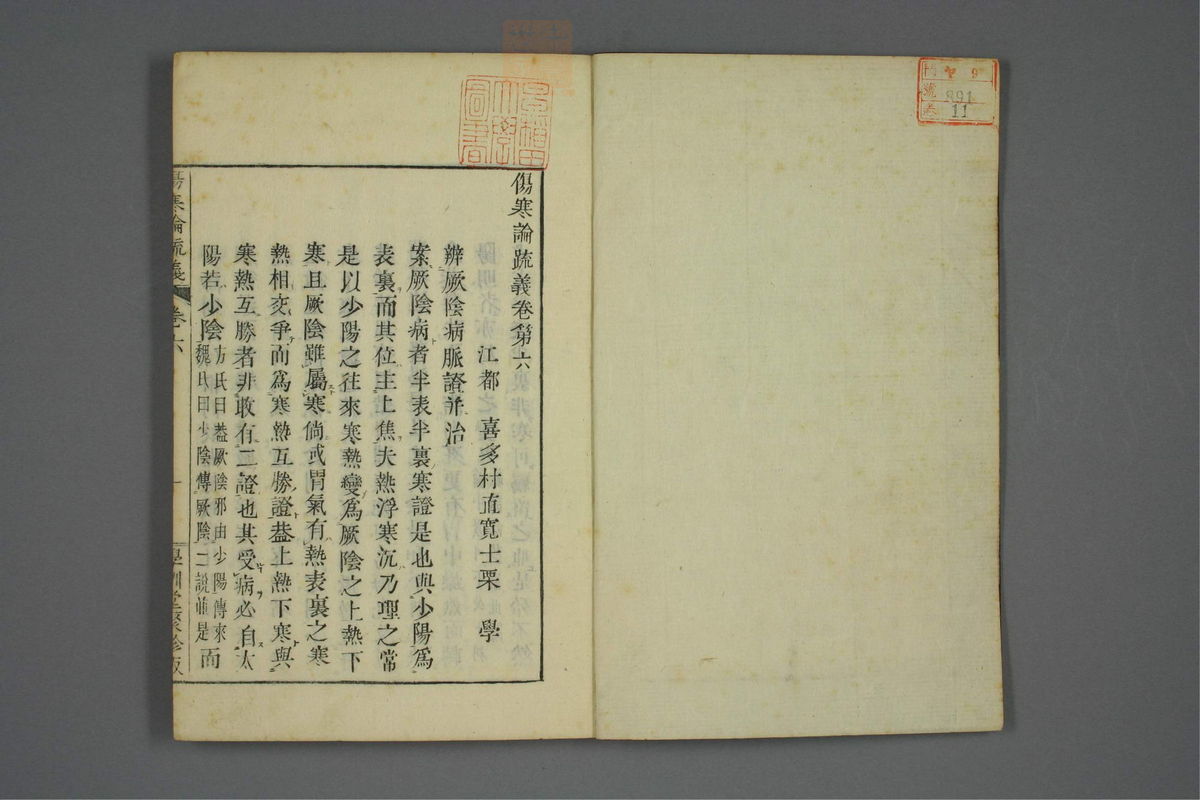 門 ヤ 9
號 891
卷 11
早稲田大學圖書
傷寒論疏義卷第六
江都 喜多村直寛士栗 學
辨厥陰病脈證并治
案厥陰病者半表半裏寒證是也與少陽爲
表裏而其位主上焦夫熱浮寒沉乃理之常
是以少陽之往來寒熱變爲厥陰之上熱下
寒且厥陰雖屬寒倘或胃氣有熱表裏之寒
熱相交爭而爲寒熱互勝證葢上熱下寒與
寒熱互勝者非敢有二證也其受病必自太
陽若少陰方氏曰葢厥陰邪由少陽傳來魏氏曰少陰傳厥陰二說並是而
傷寒論疏義 卷六 一